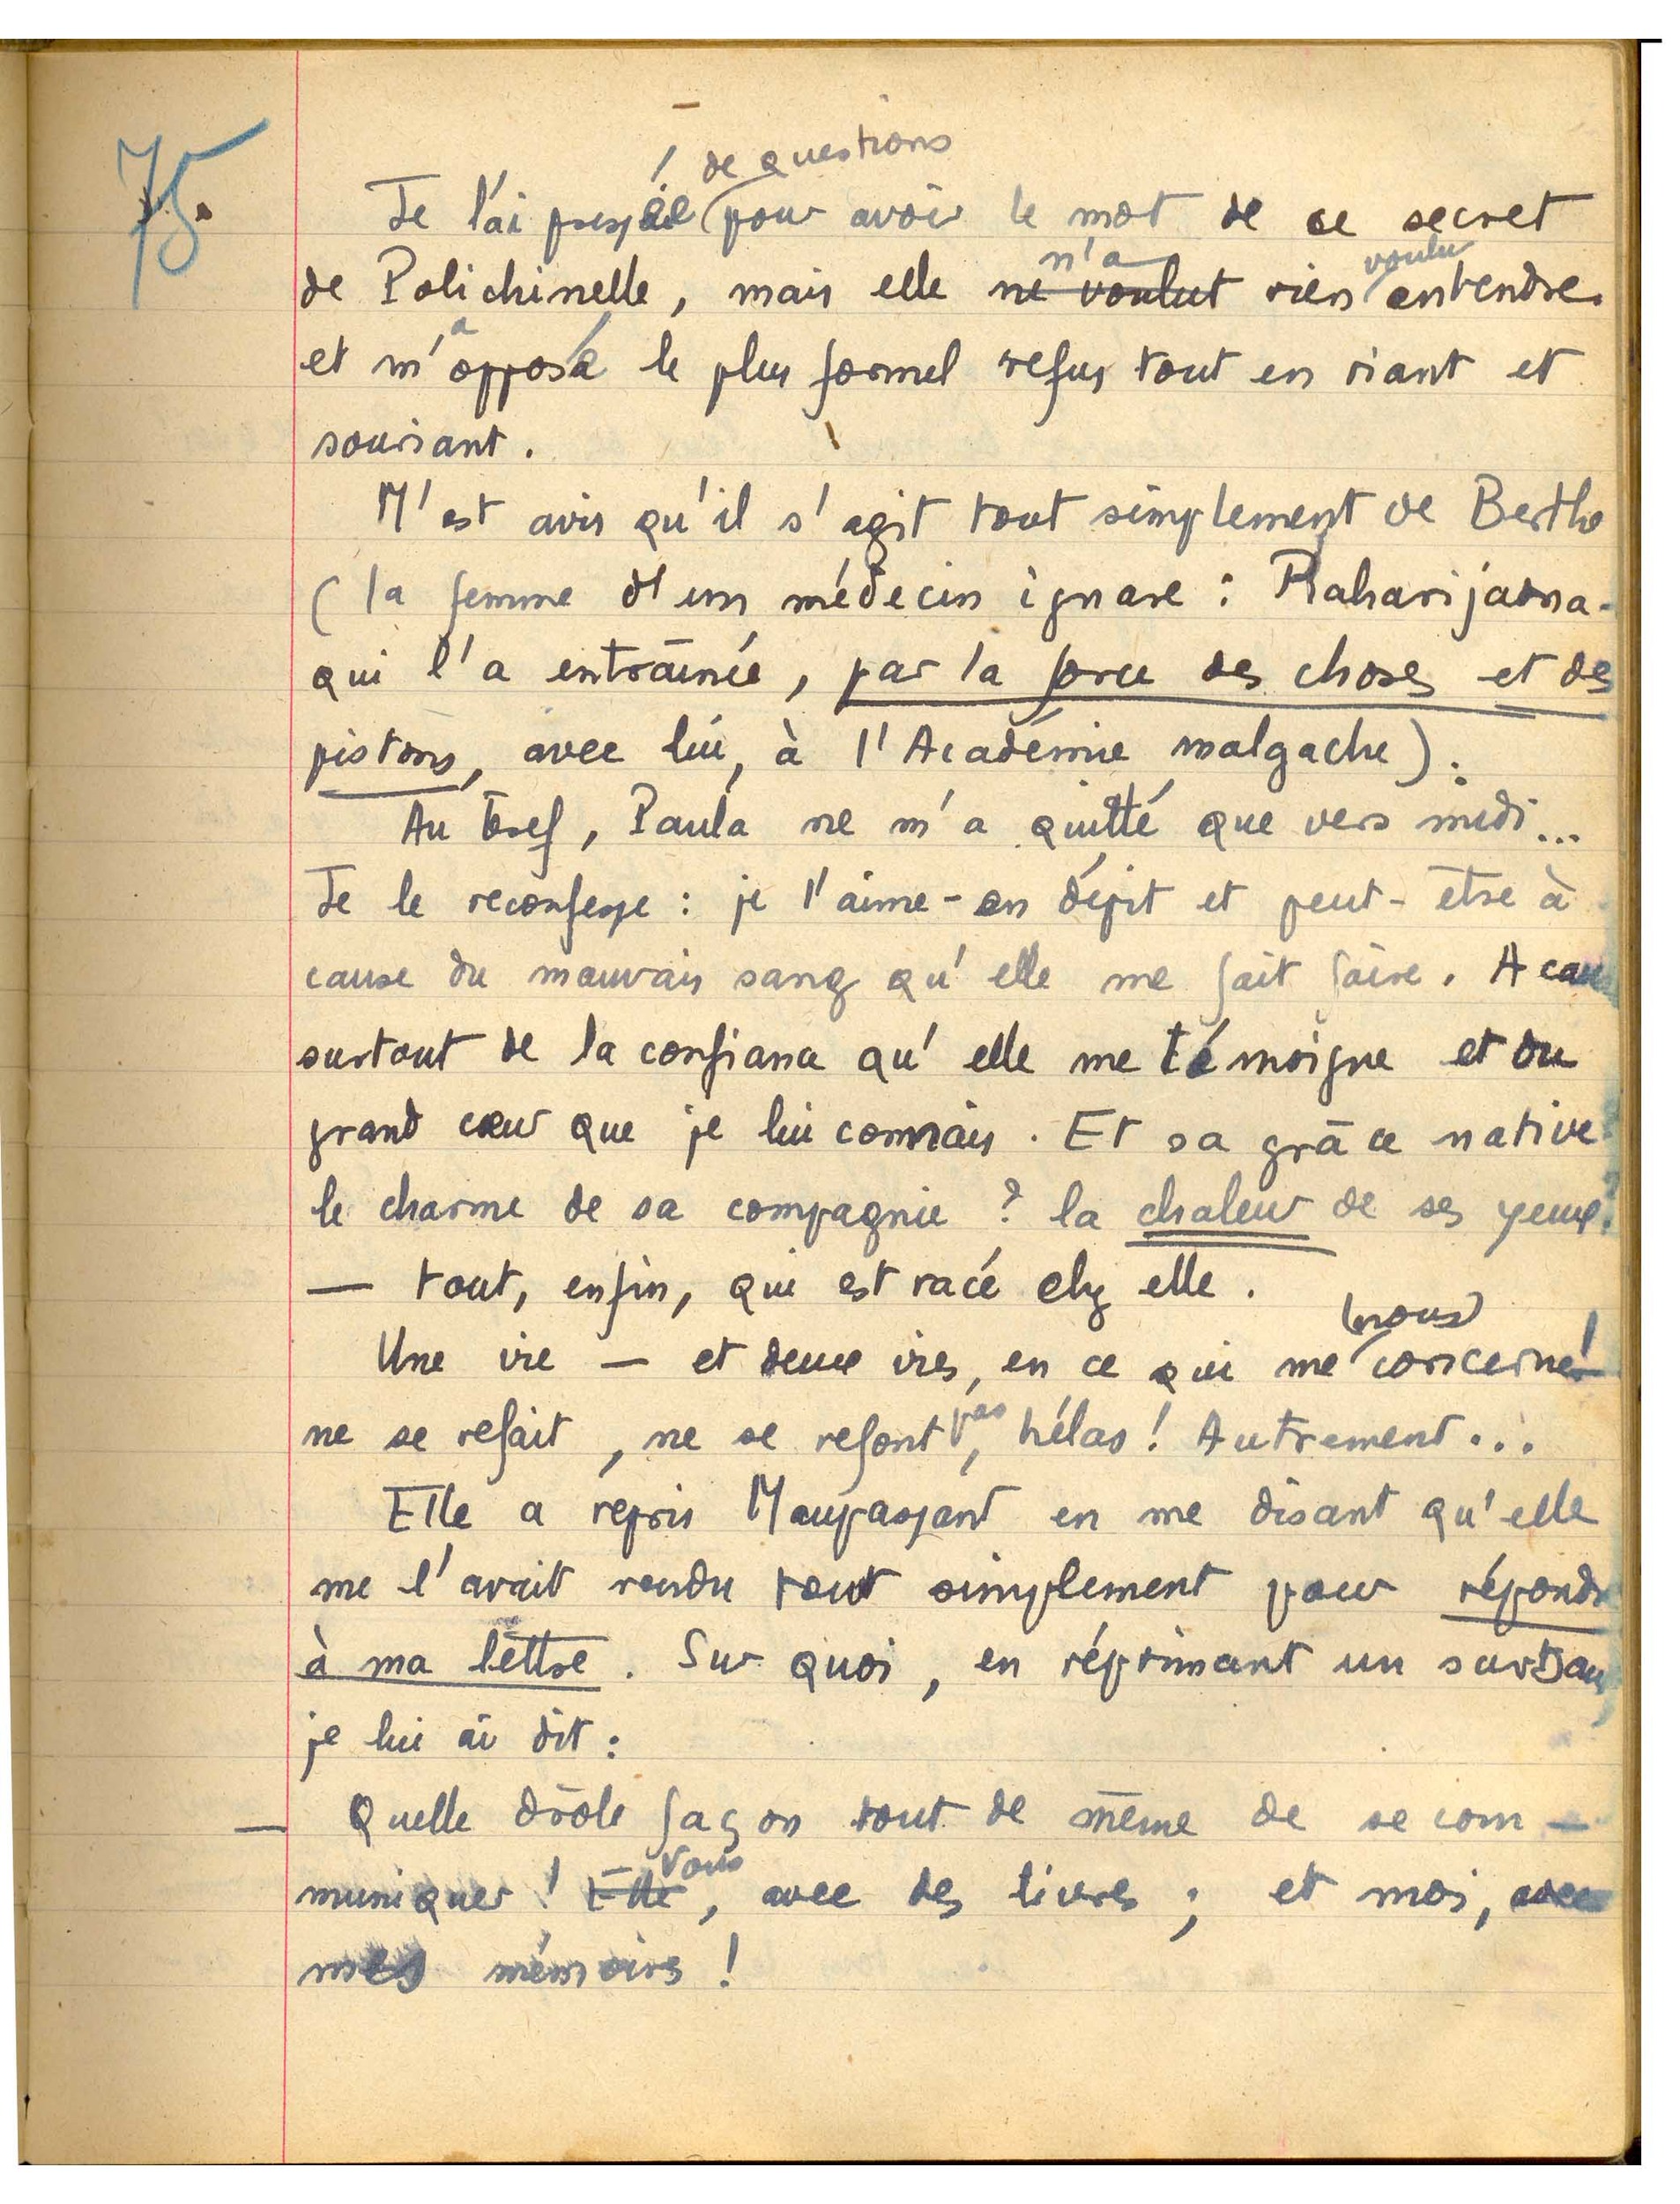 75.
de questions
Je l'ai pressée pour avoir le mot de ce secret
n'a voulu
de Polichinelle, mais elle ne voulut rien entendre
et m'a opposé le plus formel refus tout en riant et
souriant.
M'est avis qu'il s'agit tout simplement de Berthe
(la femme d'un médecin ignare : Raharijaona -
qui l'a entraînée, par la force des choses et des
pistons, avec lui, à l'Académie malgache).
Au bref, Paula ne m'a quitté que vers midi...
Je le reconfesse : je l'aime - en dépit et peut-être à
cause du mauvais sang qu'elle me fait faire. A cause
surtout de la confiance qu'elle me témoigne et du
grand cœur que je lui connais. Et sa grâce native ?
le charme de sa compagnie ? la chaleur de ses yeux ?
— tout, enfin, qui est racé chez elle.
(nous)
Une vie — et deux vies, en ce qui me concerne !
ne se refait, ne se refont pas, hélas ! Autrement...
Elle a repris Maupassant en me disant qu'elle
me l'avait rendu tout simplement pour répondre
à ma lettre. Sur quoi, en réprimant un sursaut,
je lui ai dit :
— Quelle drôle façon tout de même de se com-
Vous
muniquer ! Elle, avec des livres ; et moi, avec
mes mémoires !